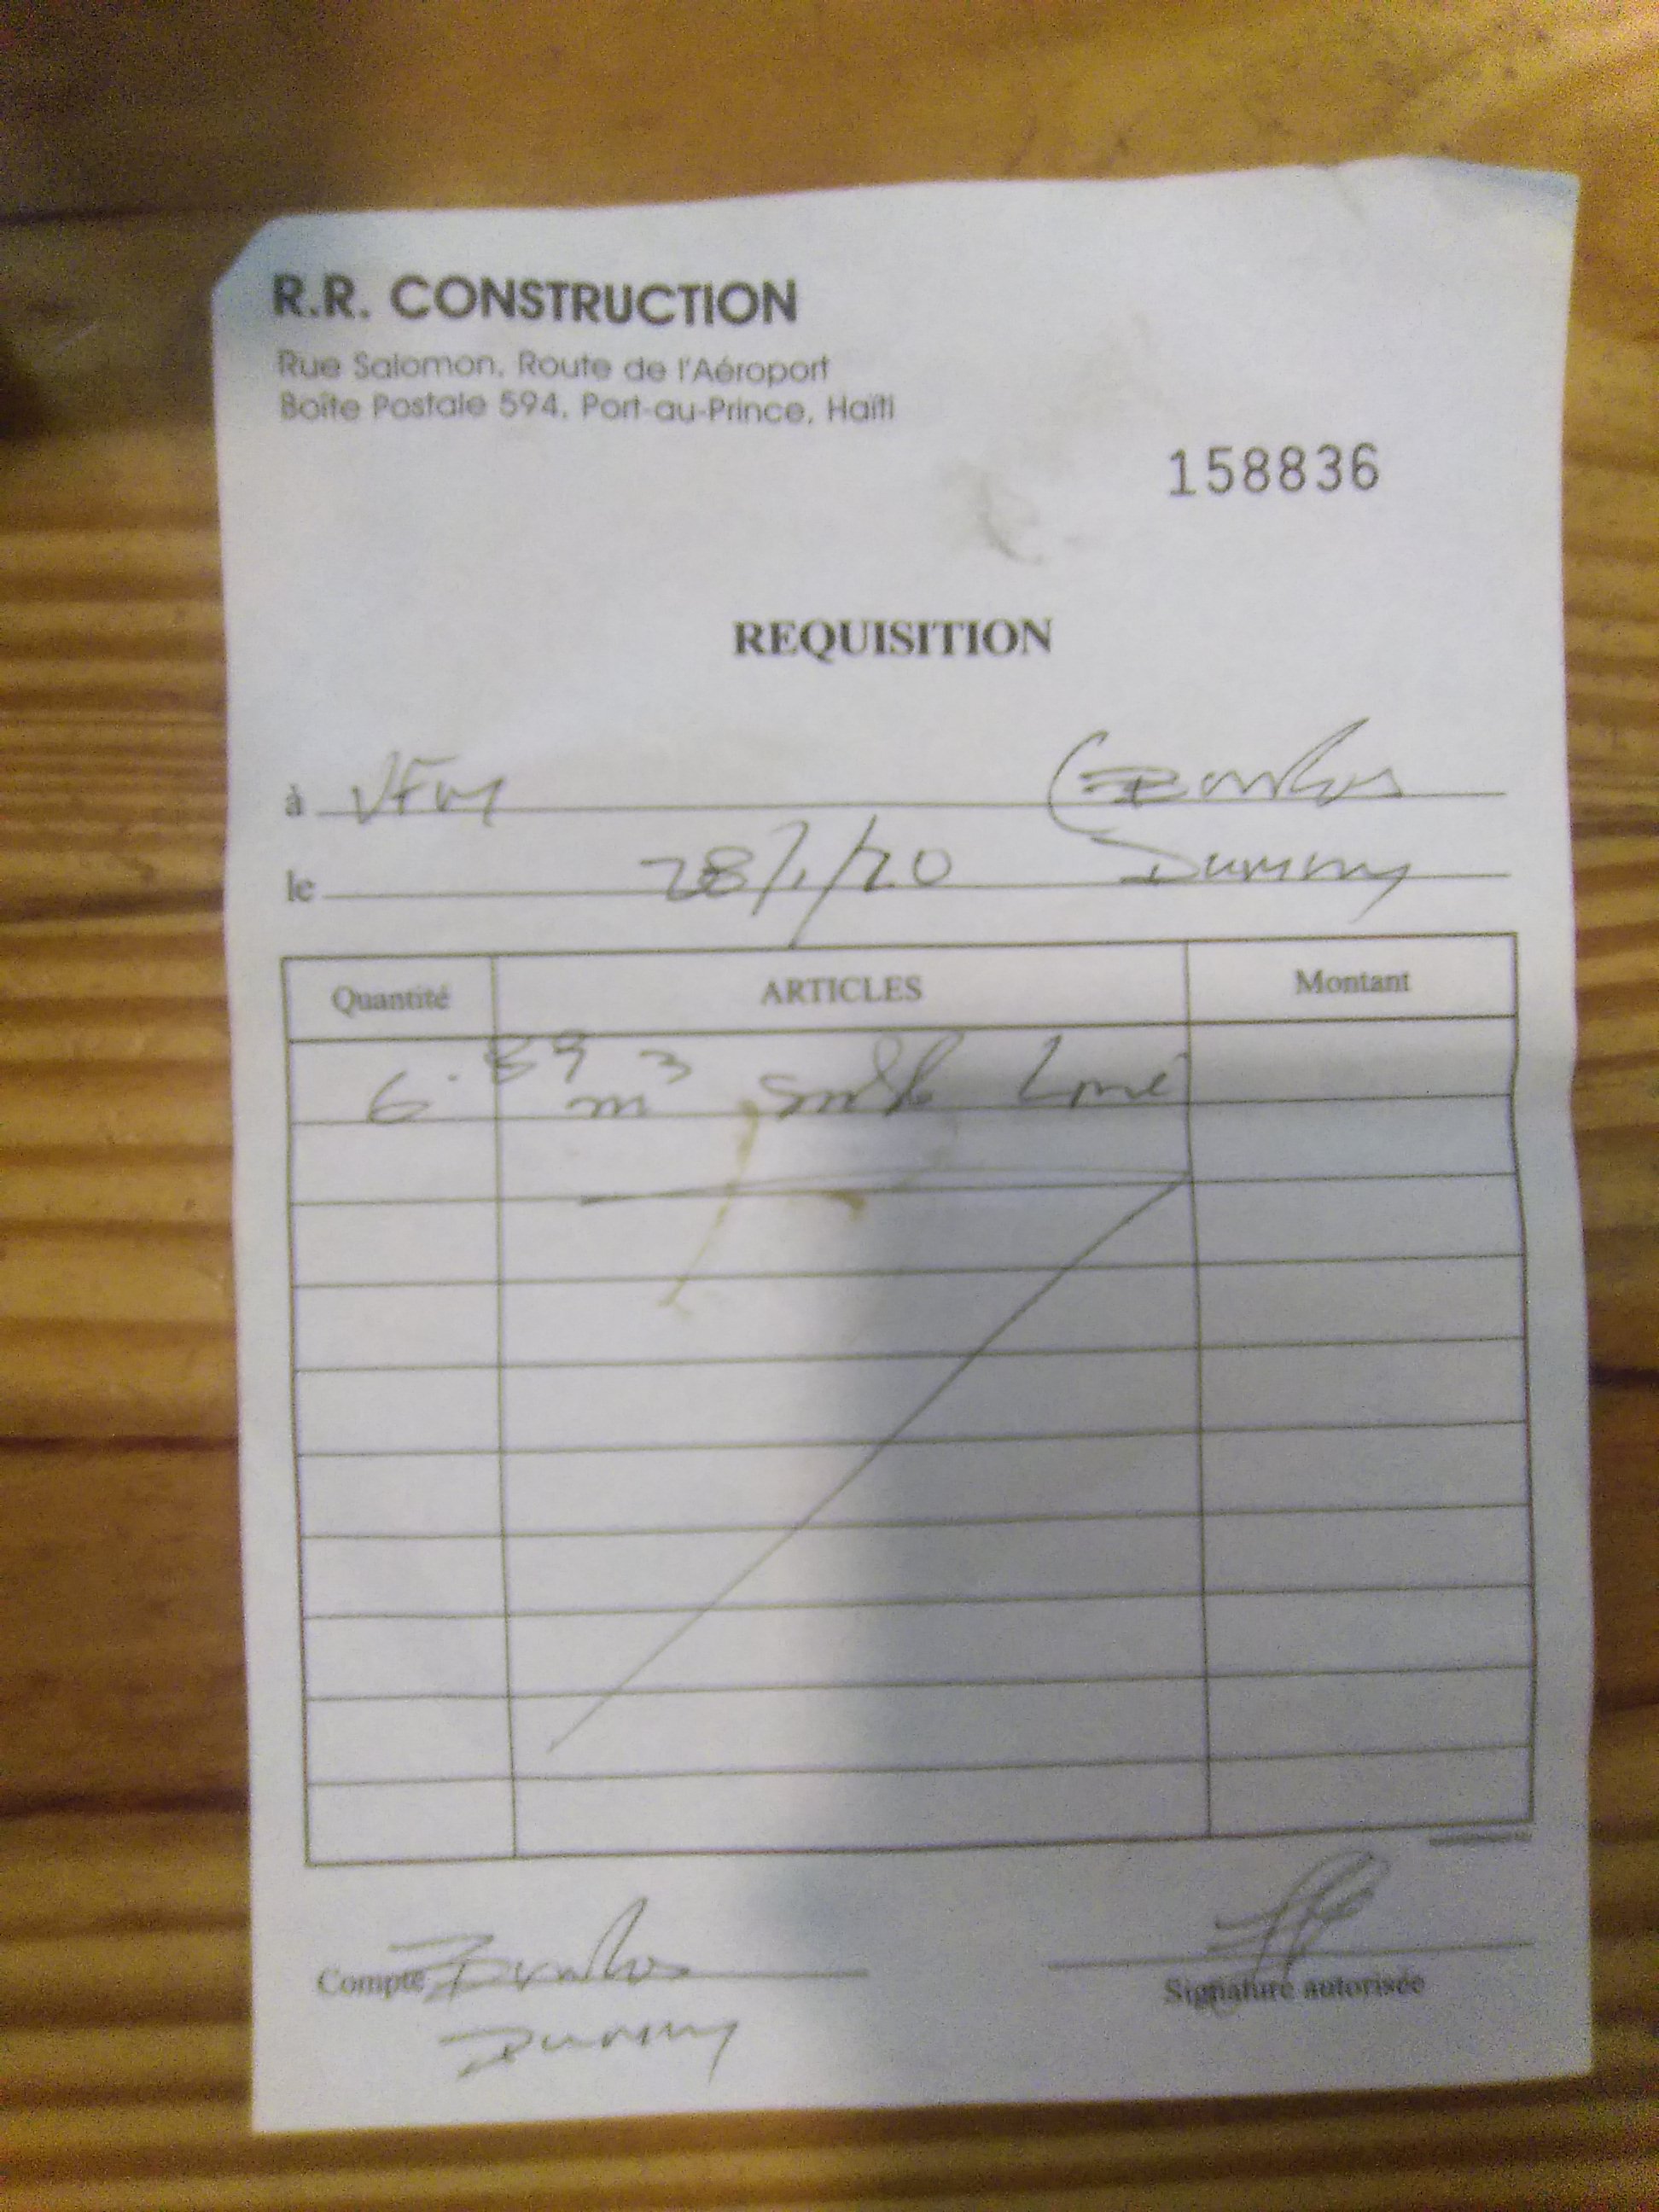 R.R. CONSTRUCTION
Rue Salomon, Route de l'Aéroport
Boîte Postale 594, Port-au-Prince, Haïti
158836
REQUISITION
à VFM
le 28/1/20 Dummy
Quantité ARTICLES Montant
6.89 m³ sable Lavé
Compte
Signature autorisée
Dummy